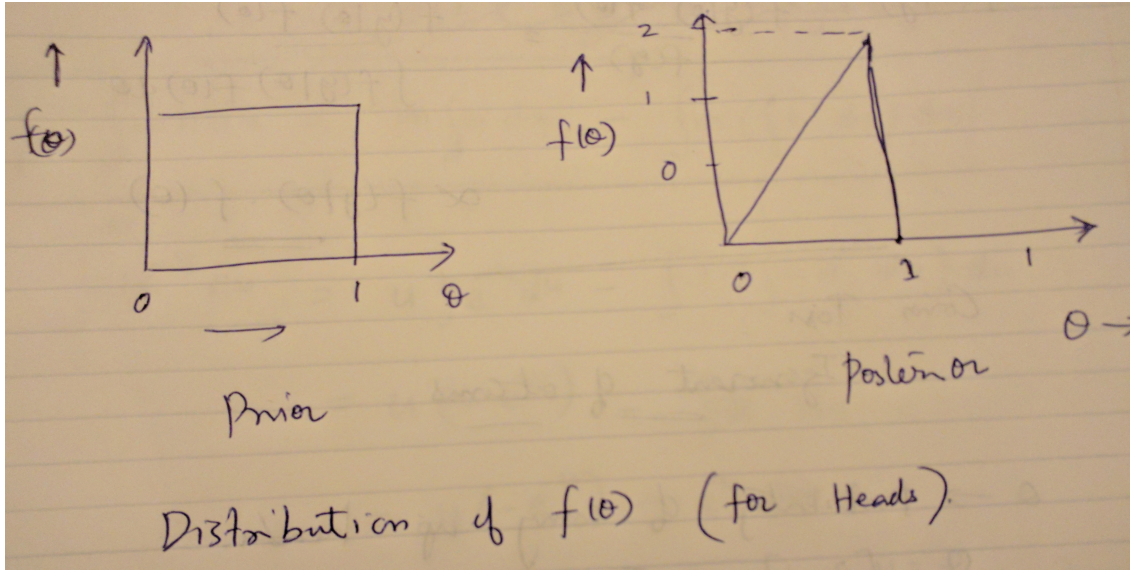 f(θ)
0 1 θ
Prior
2
1
f(θ)
0
0 1 1
θ
Posterior
Distribution of f(θ) (for Heads).